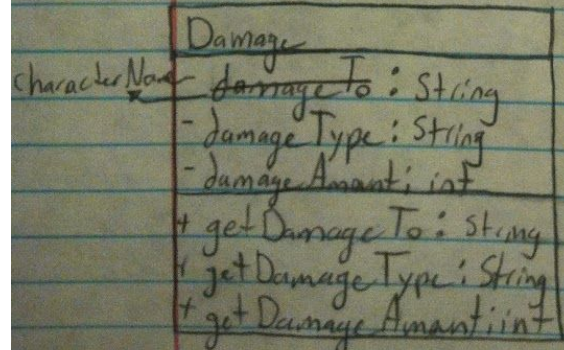 Damage
characterName - damageTo : String
- damageType : String
- damageAmant : int
+ getDamageTo : String
+ getDamageType : String
+ getDamageAmant : int